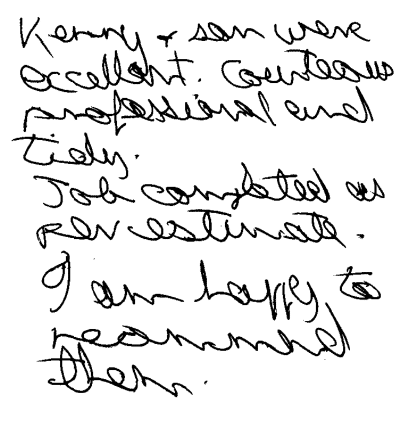 Kenny + son were
excellent. Courteous
professional and
tidy.
Job completed as
per estimate.
I am happy to
recommend
them.